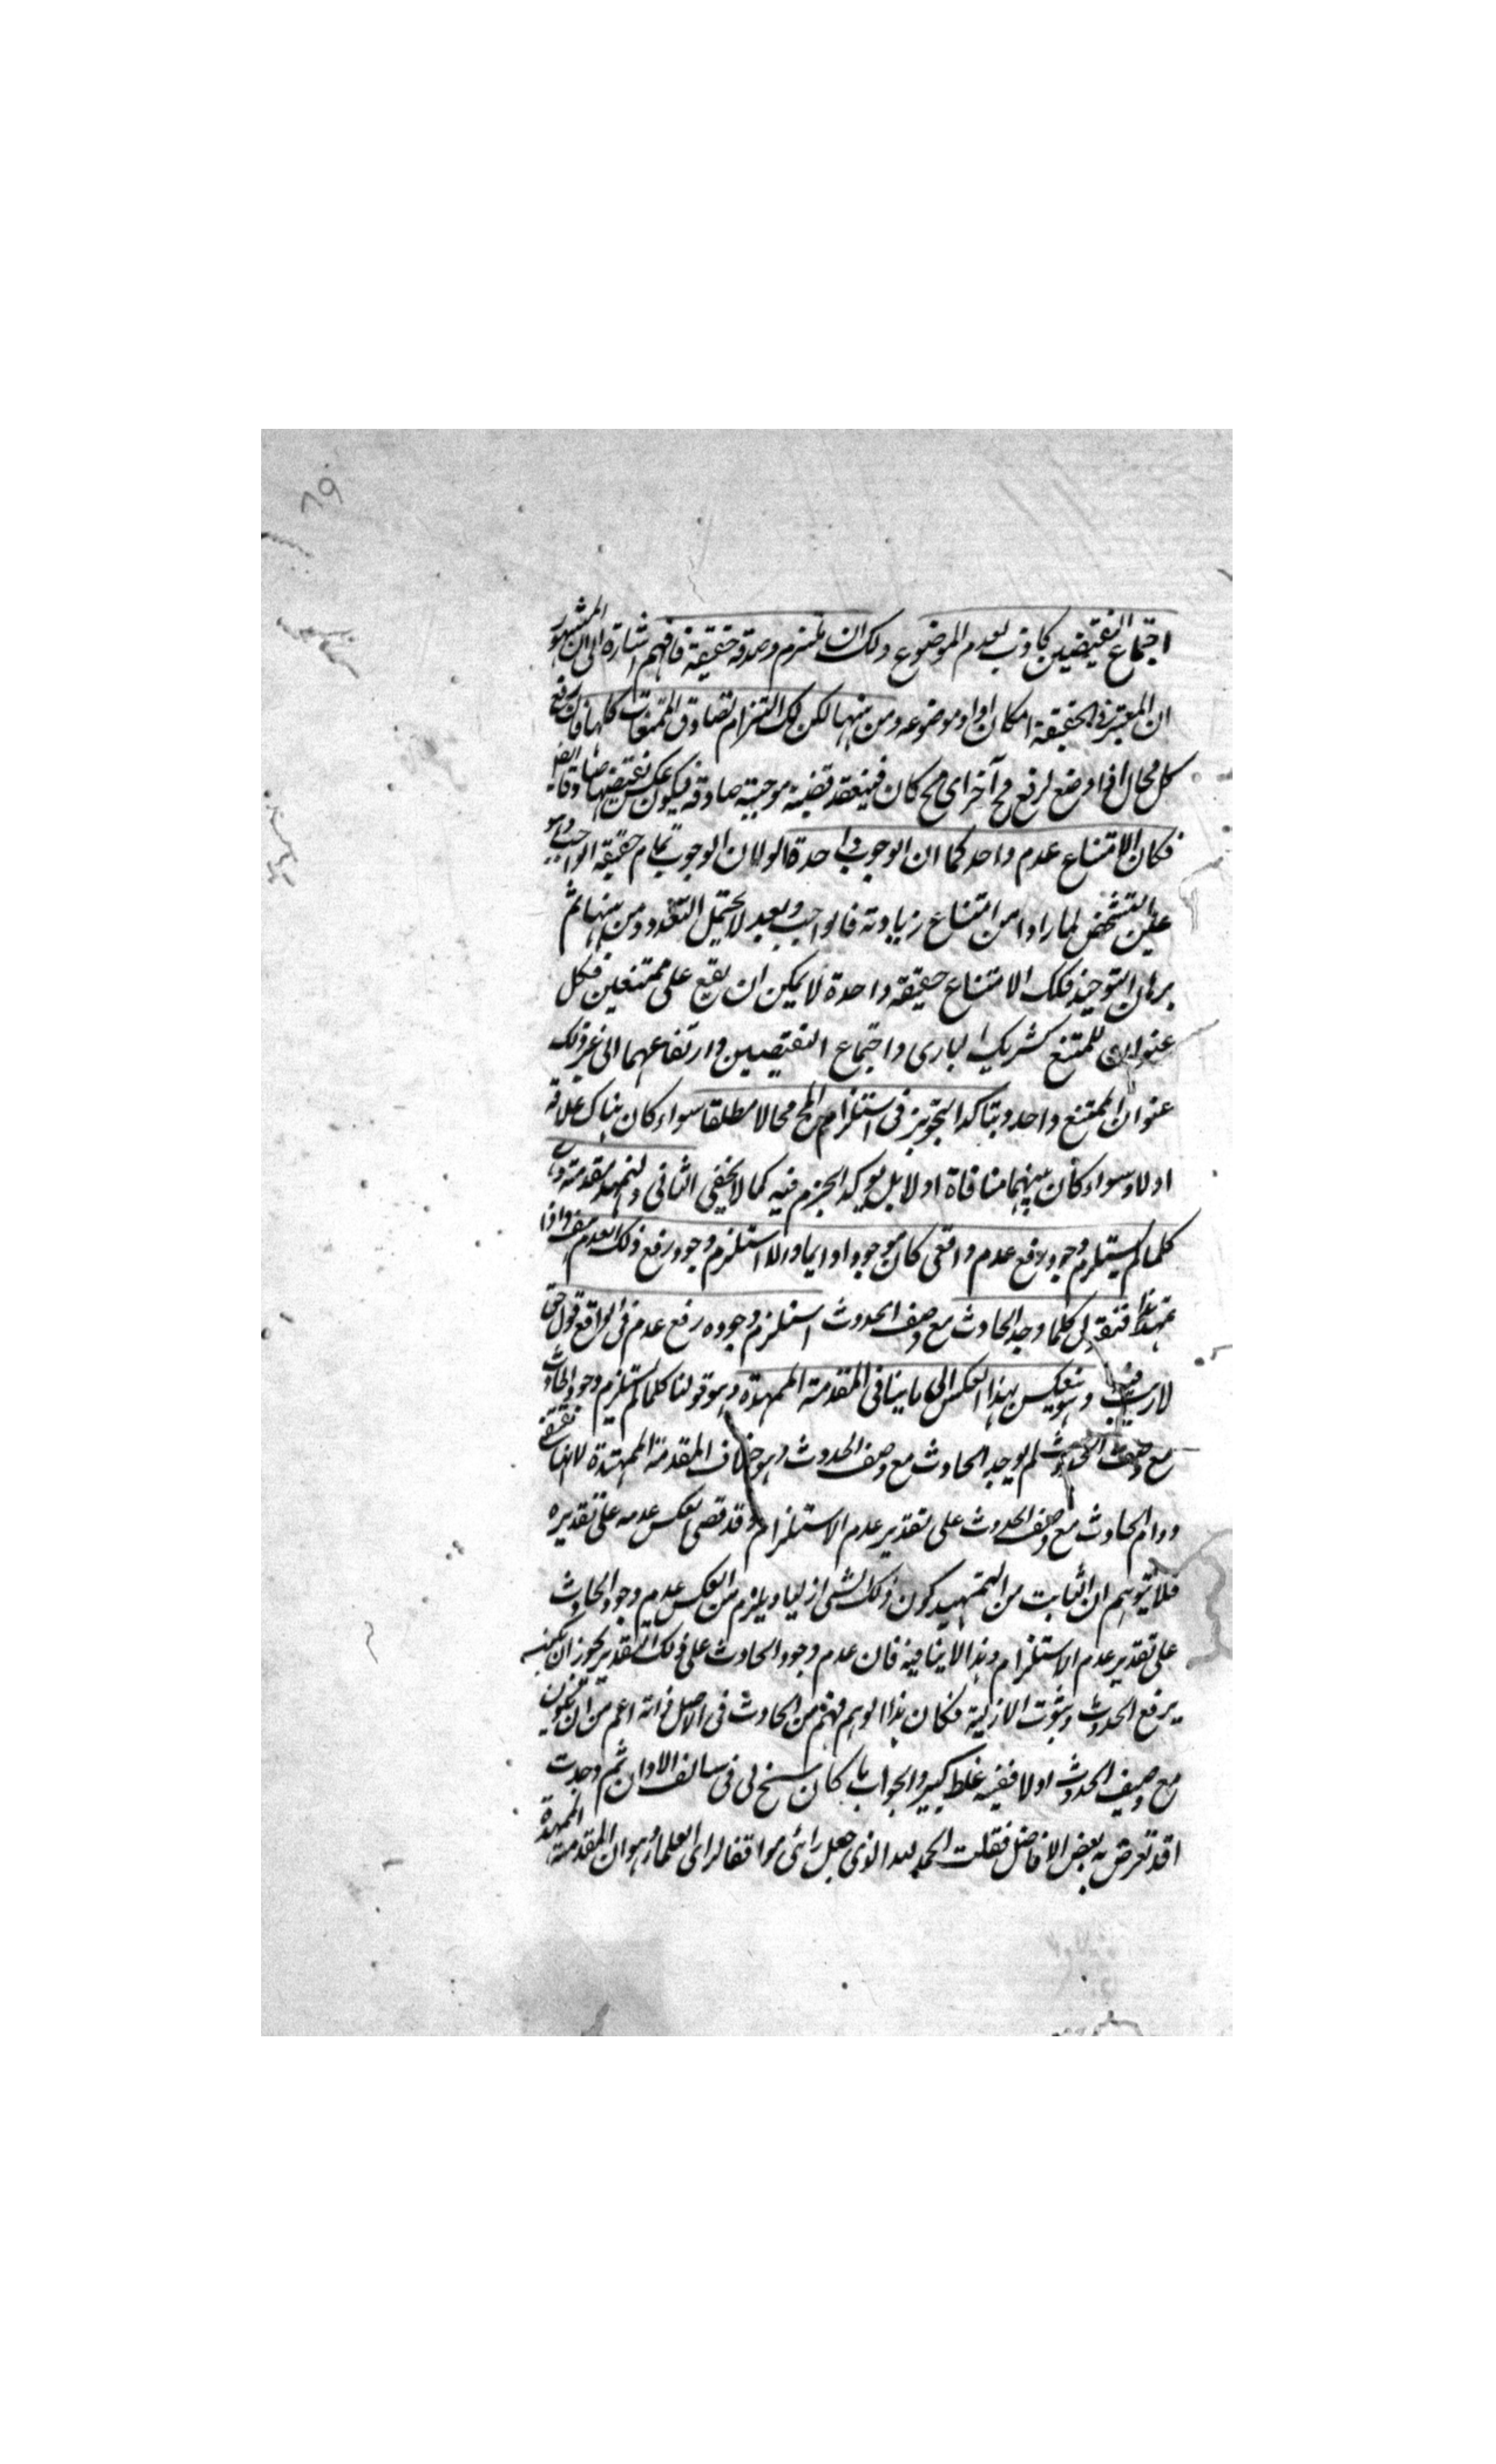 ٦٩
اجتماع النقيضين كاذب لعدم الموضوع ولك ان تلتزم وصدقه حقيقية فافهم اشارة الى ان المشهور
ان المعتبر فى الحقيقية امكان افراد موضوعه ومن ههنا لكن لك التزام تصادق الممتنعات كلها فان رفع
كل محال اذا وضع لرفع مح آخر اى مح كان فينعقد قضية موجبة صادقة فيكون عكس نقيضها صادقا ايضا
فكان الامتناع عدم واحد كما ان الوجوب واحدة الولان الوجوب تمام حقيقة الواجب وهو
عين التشخص لما رادا من امتناع زيادته فالواجب وبعد لا يحتمل التعدد ومن ههنا ثم
برهان التوحيد فكك الامتناع حقيقة واحدة لا يمكن ان يقع على ممتنعين فكل
عنوان للممتنع كشريك البارى واجتماع النقيضين وارتفاعهما الى غير ذلك
عنوان الممتنع واحد وبتاكد التجويز فى استلزام المح محالا مطلقا سواء كان هناك علاقة
اولا وسواء كان بينهما منافاة اولا بل يوكد الجزم فيه كما لا يخفى الثانى ولنمهد مقدمة وهى
كلما لم يستلزم وجود رفع عدم واقعى كان موجودا دايما والا استلزم وجود رفع ذلك العدم هف واذا
تمهد هذا فنقول كلما وجد الحادث مع وصف الحدوث استلزم وجوده رفع عدم فى الواقع قول حق
لا ريب فيه وهو ينعكس بهذا العكس الى ما ينافى المقدمة الممهدة وهو قولنا كلما لم يستلزم وجود الحادث
مع وصف الحدوث لم يوجد الحادث مع وصف الحدوث وهو خلاف المقدمة الممهدة لانها تقتضى
دوام الحادث مع وصف الحدوث على تقدير عدم الاستلزام وقد قضى العكس عدمه على تقديره
فلا يتوهم ان الثابت من التمهيد كون ذلك الشى ازليا ويلزم من العكس عدم وجود الحادث
على تقدير عدم الاستلزام وهذا لا ينافيه فان عدم وجود الحادث على ذلك التقدير يجوز ان يكون
يرفع الحدوث وثبوت الازلية فكان هذا الوهم فهم من الحادث فى الاصل ذاته اعم من ان يكون
مع وصف الحدوث اولا ففيه غلط كبير والجواب ما كان سنح لى فى سالف الاوان ثم وجدت
قد تعرض به بعض الافاضل فقلت الحمد لله الذى جعل رائى موافقا لراى العلماء هو ان المقدمة الممهدة